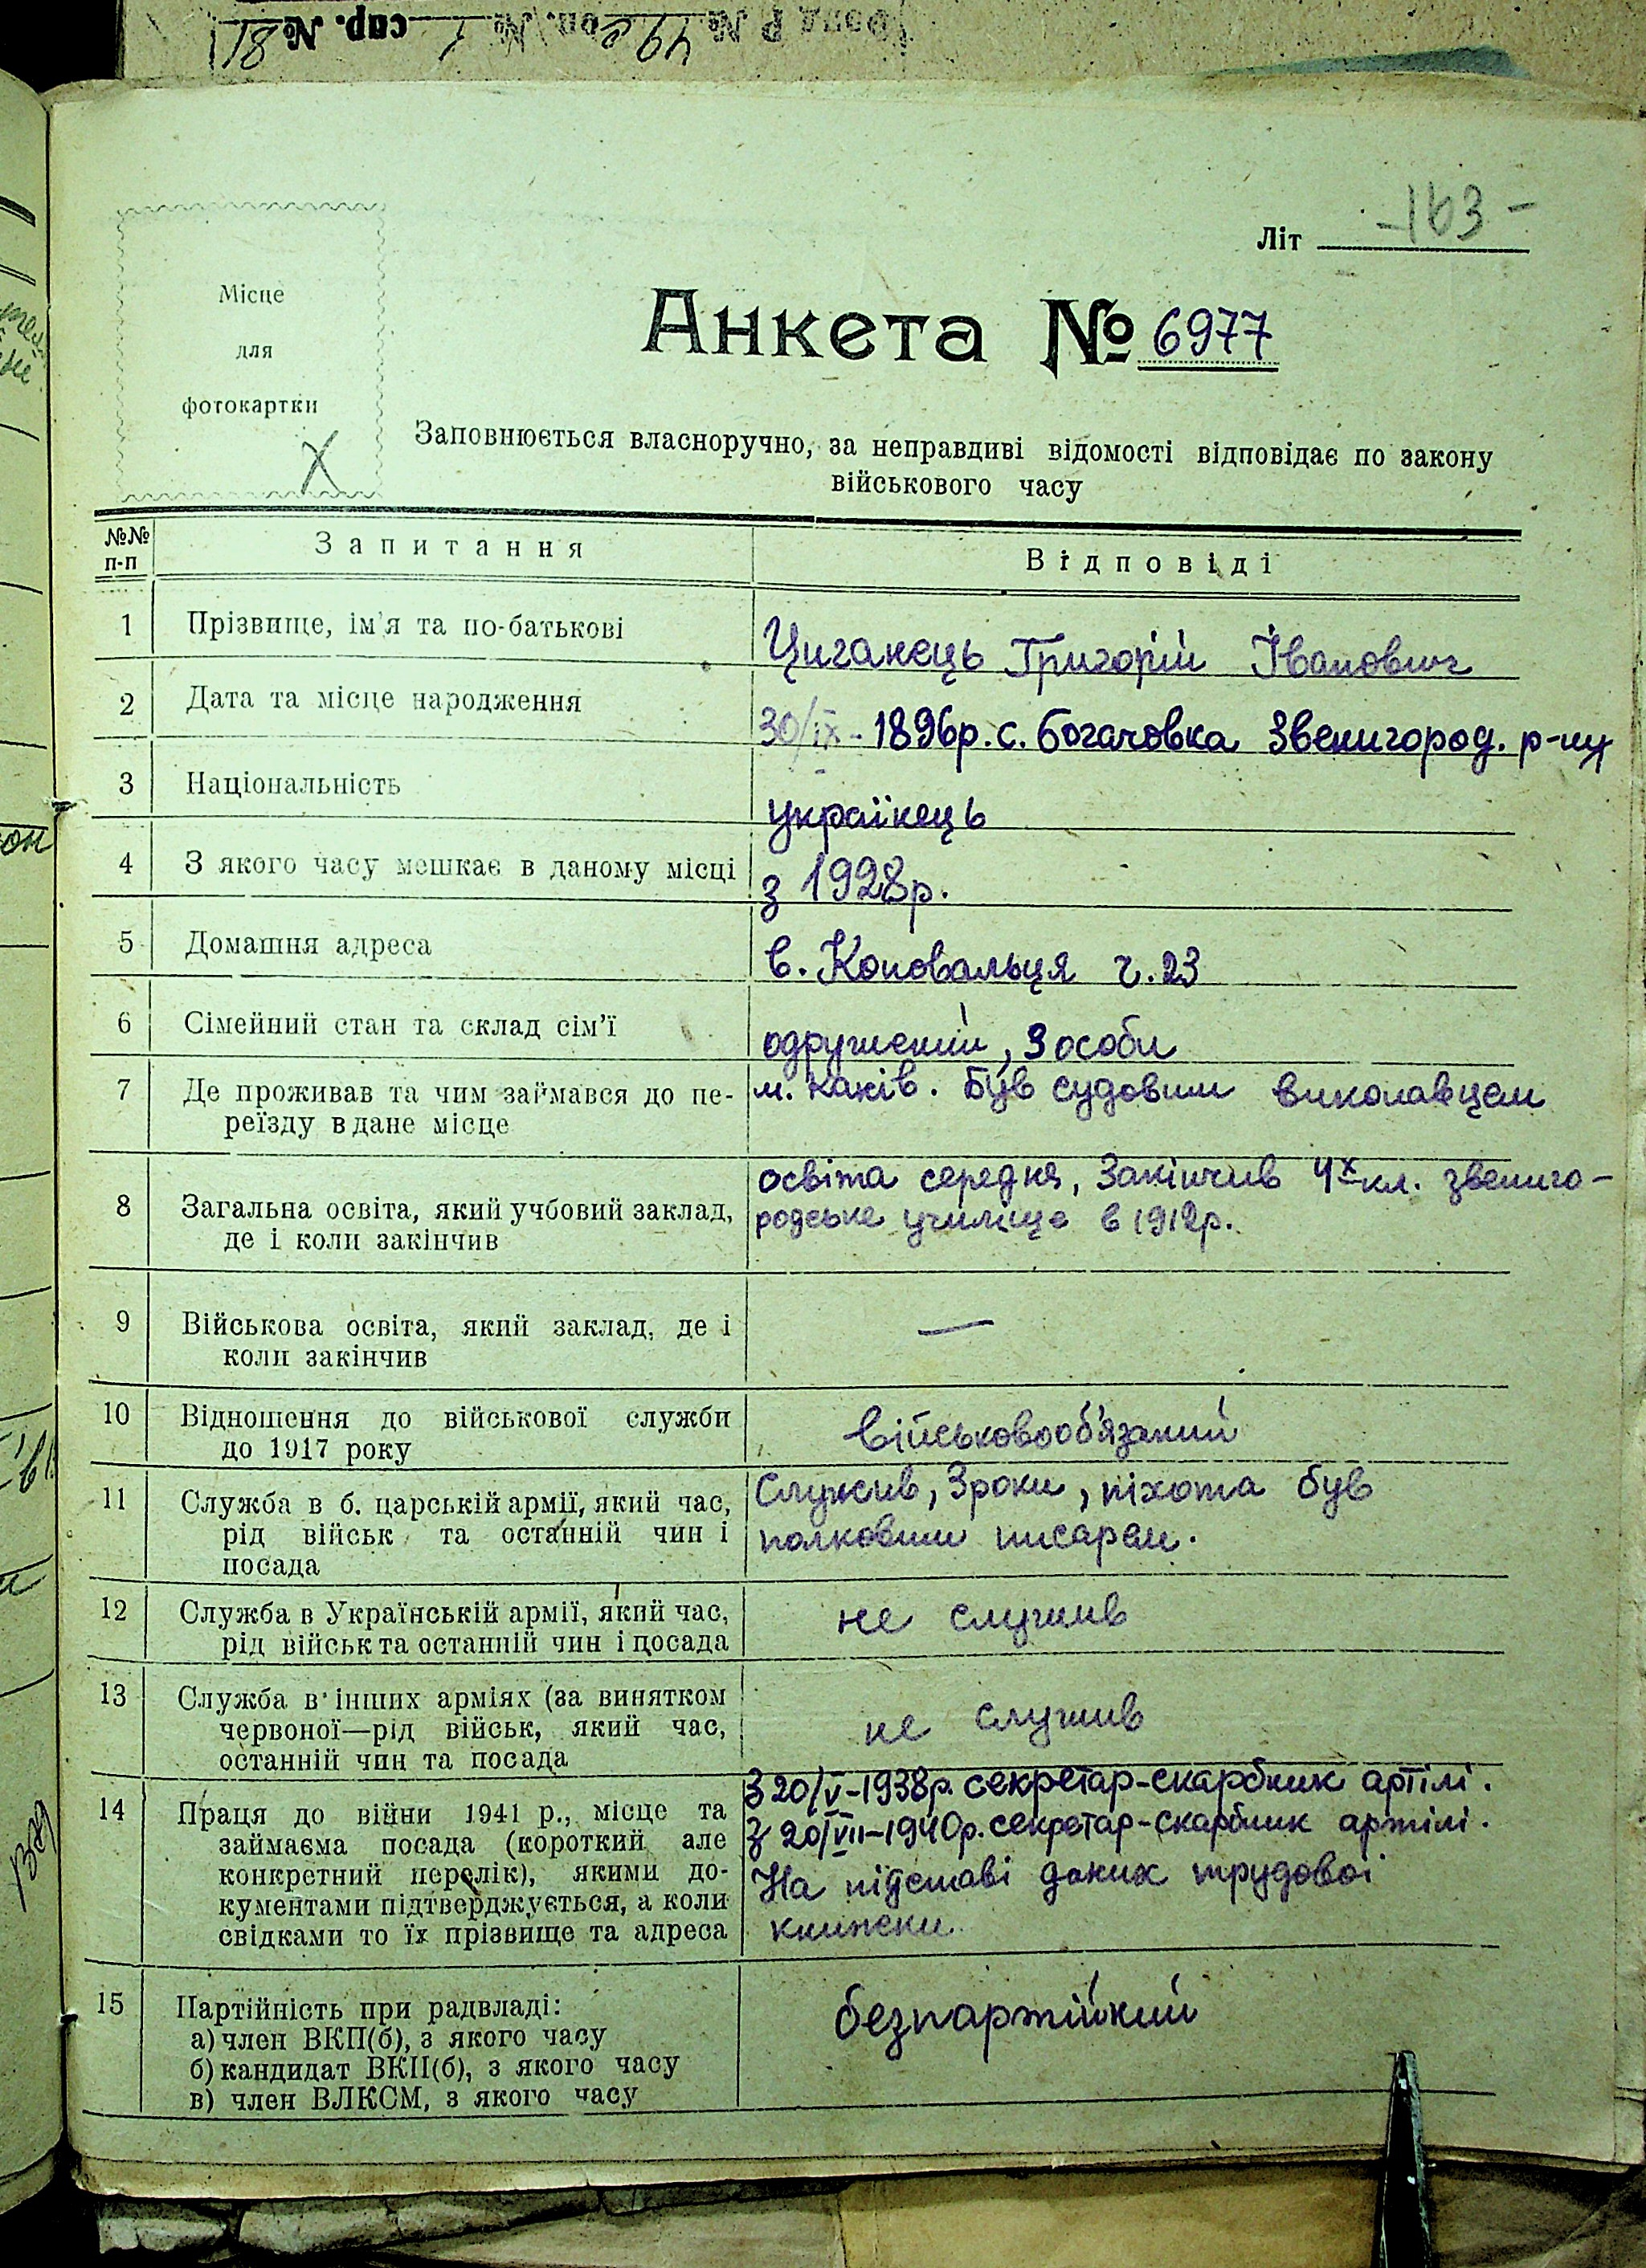 Фонд Р № 49 оп. № 1 спр. № 81
Літ -163-
Місце
для
фотокартки
Х
Анкета № 6977
Заповнюється власноручно, за неправдиві відомості відповідає по закону
військового часу
№№ п-п Запитання Відповіді
1 Прізвище, ім'я та по-батькові Циганець Григорій Іванович
2 Дата та місце народження 30/ІХ - 1896р. с. Богачовка Звенигород. р-ну
3 Національність українець
4 З якого часу мешкає в даному місці з 1928р.
5 Домашня адреса в. Коновальця ч. 23
6 Сімейний стан та склад сім'ї одружений, 3 особи
7 Де проживав та чим займався до пе- м. Канів. Був судовим виконавцем
реїзду в дане місце
8 Загальна освіта, який учбовий заклад, освіта середня, Закінчив 4х кл. звениго-
де і коли закінчив родське училище в 1912р.
9 Військова освіта, який заклад, де і —
коли закінчив
10 Відношення до військової служби військовооб'язаний
до 1917 року
11 Служба в б. царській армії, який час, Служив, 3 роки, піхота був
рід військ та останній чин і полковим писарем.
посада
12 Служба в Українській армії, який час, не служив
рід військ та останній чин і посада
13 Служба в інших арміях (за винятком не служив
червоної—рід військ, який час,
останній чин та посада
14 Праця до війни 1941 р., місце та З 20/V-1938р. секретар-скарбник артілі.
займаєма посада (короткий але З 20/VII-1940р. секретар-скарбник артілі.
конкретний перелік), якими до- На підставі даних трудової
кументами підтверджується, а коли книжки
свідками то їх прізвище та адреса
15 Партійність при радвладі: безпартійний
а) член ВКП(б), з якого часу
б) кандидат ВКП(б), з якого часу
в) член ВЛКСМ, з якого часу